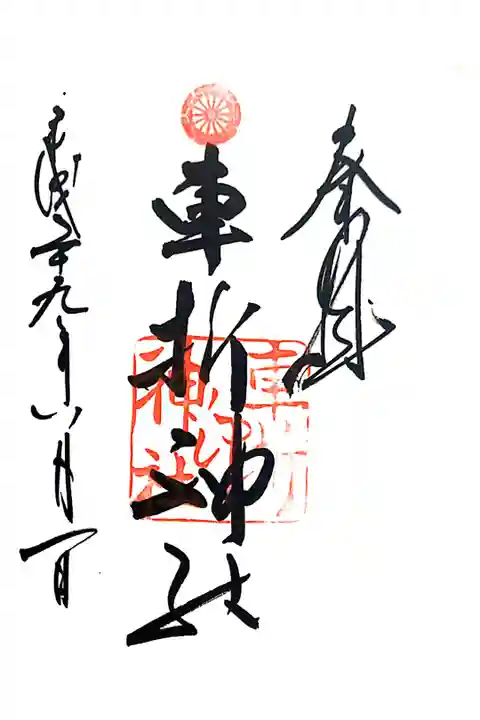 奉拝
車折神社
車折
神社
平成二十九年八月一日